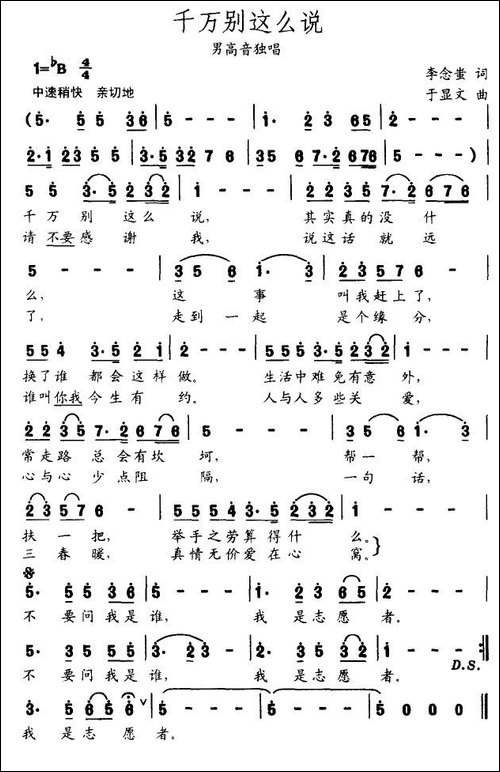 千万别这么说
男高音独唱
1=♭B 4/4
李念 词
中速稍快 亲切地
于显文 曲
(5· 5 5 3 6 | 5 - - - | 1· 2 3 6 5 | 2 - - - |
2·1 2 3 5 5 | 3·5 3 2 7 6 | 3 5 5 6 7·2 6 7 6 | 5 - - - ) |
5 5 3·5 2 3 2 | 1 - - - | 2 2 3 5 7·2 6 7 6 |
千万别这么说, 其实真的没什
请不要感谢我, 说这话就远
5 - - - | 3 5 5 6 1·3 | 2 3 5 7 6 - |
么, 这事叫我赶上了,
了, 走到一起是个缘分,
5 5 4 3·5 2 1 | 2 - - - | 5 5 5 5 3·5 2 3 2 |
换了谁都会这样做。 生活中难免有意外,
谁叫你我今生有约。 人与人多些关爱,
2 2 3 5 7·2 6 7 6 | 5 - - - | 3 5 6 1·3 |
常走路总会有坎坷, 帮一帮,
心与心少点阻隔, 一句话,
2 3 5 7 6 - | 5 5 5 4 3·5 2 3 2 | 1 - - - |
扶一把, 举手之劳算得什么。
三春暖, 真情无价爱在心窝。
5· 5 5 3 6 | 5 - - 5 | 1· 2 3 6 5 | 2 - - - |
不要问我是谁, 我是志愿者。
5· 3 5 5 | 3·2 3 - | 2· 2 3 5 4 | 5 - - - :‖
不要问我是谁, 我是志愿者。
D.S.
3· 2 6 5 6 | 5 - - - | 5 - - - | 5 0 0 0 ‖
我是志愿者。